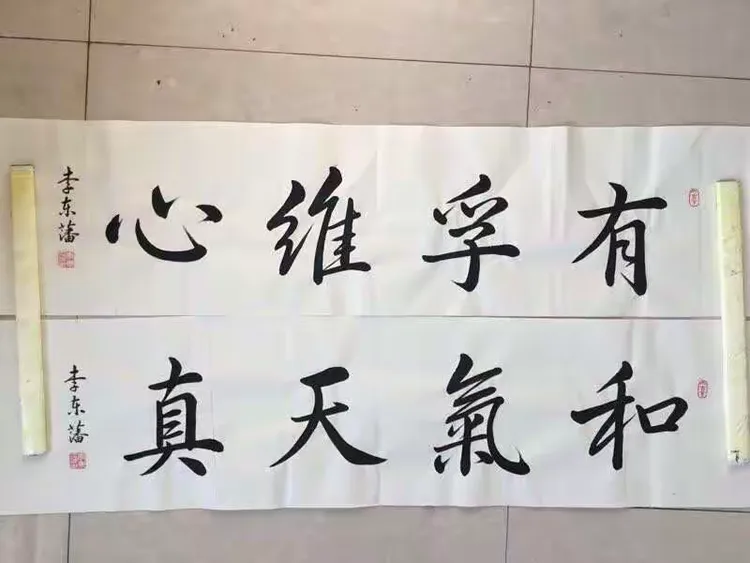 有孚維心
李东藩
和氣天真
李东藩